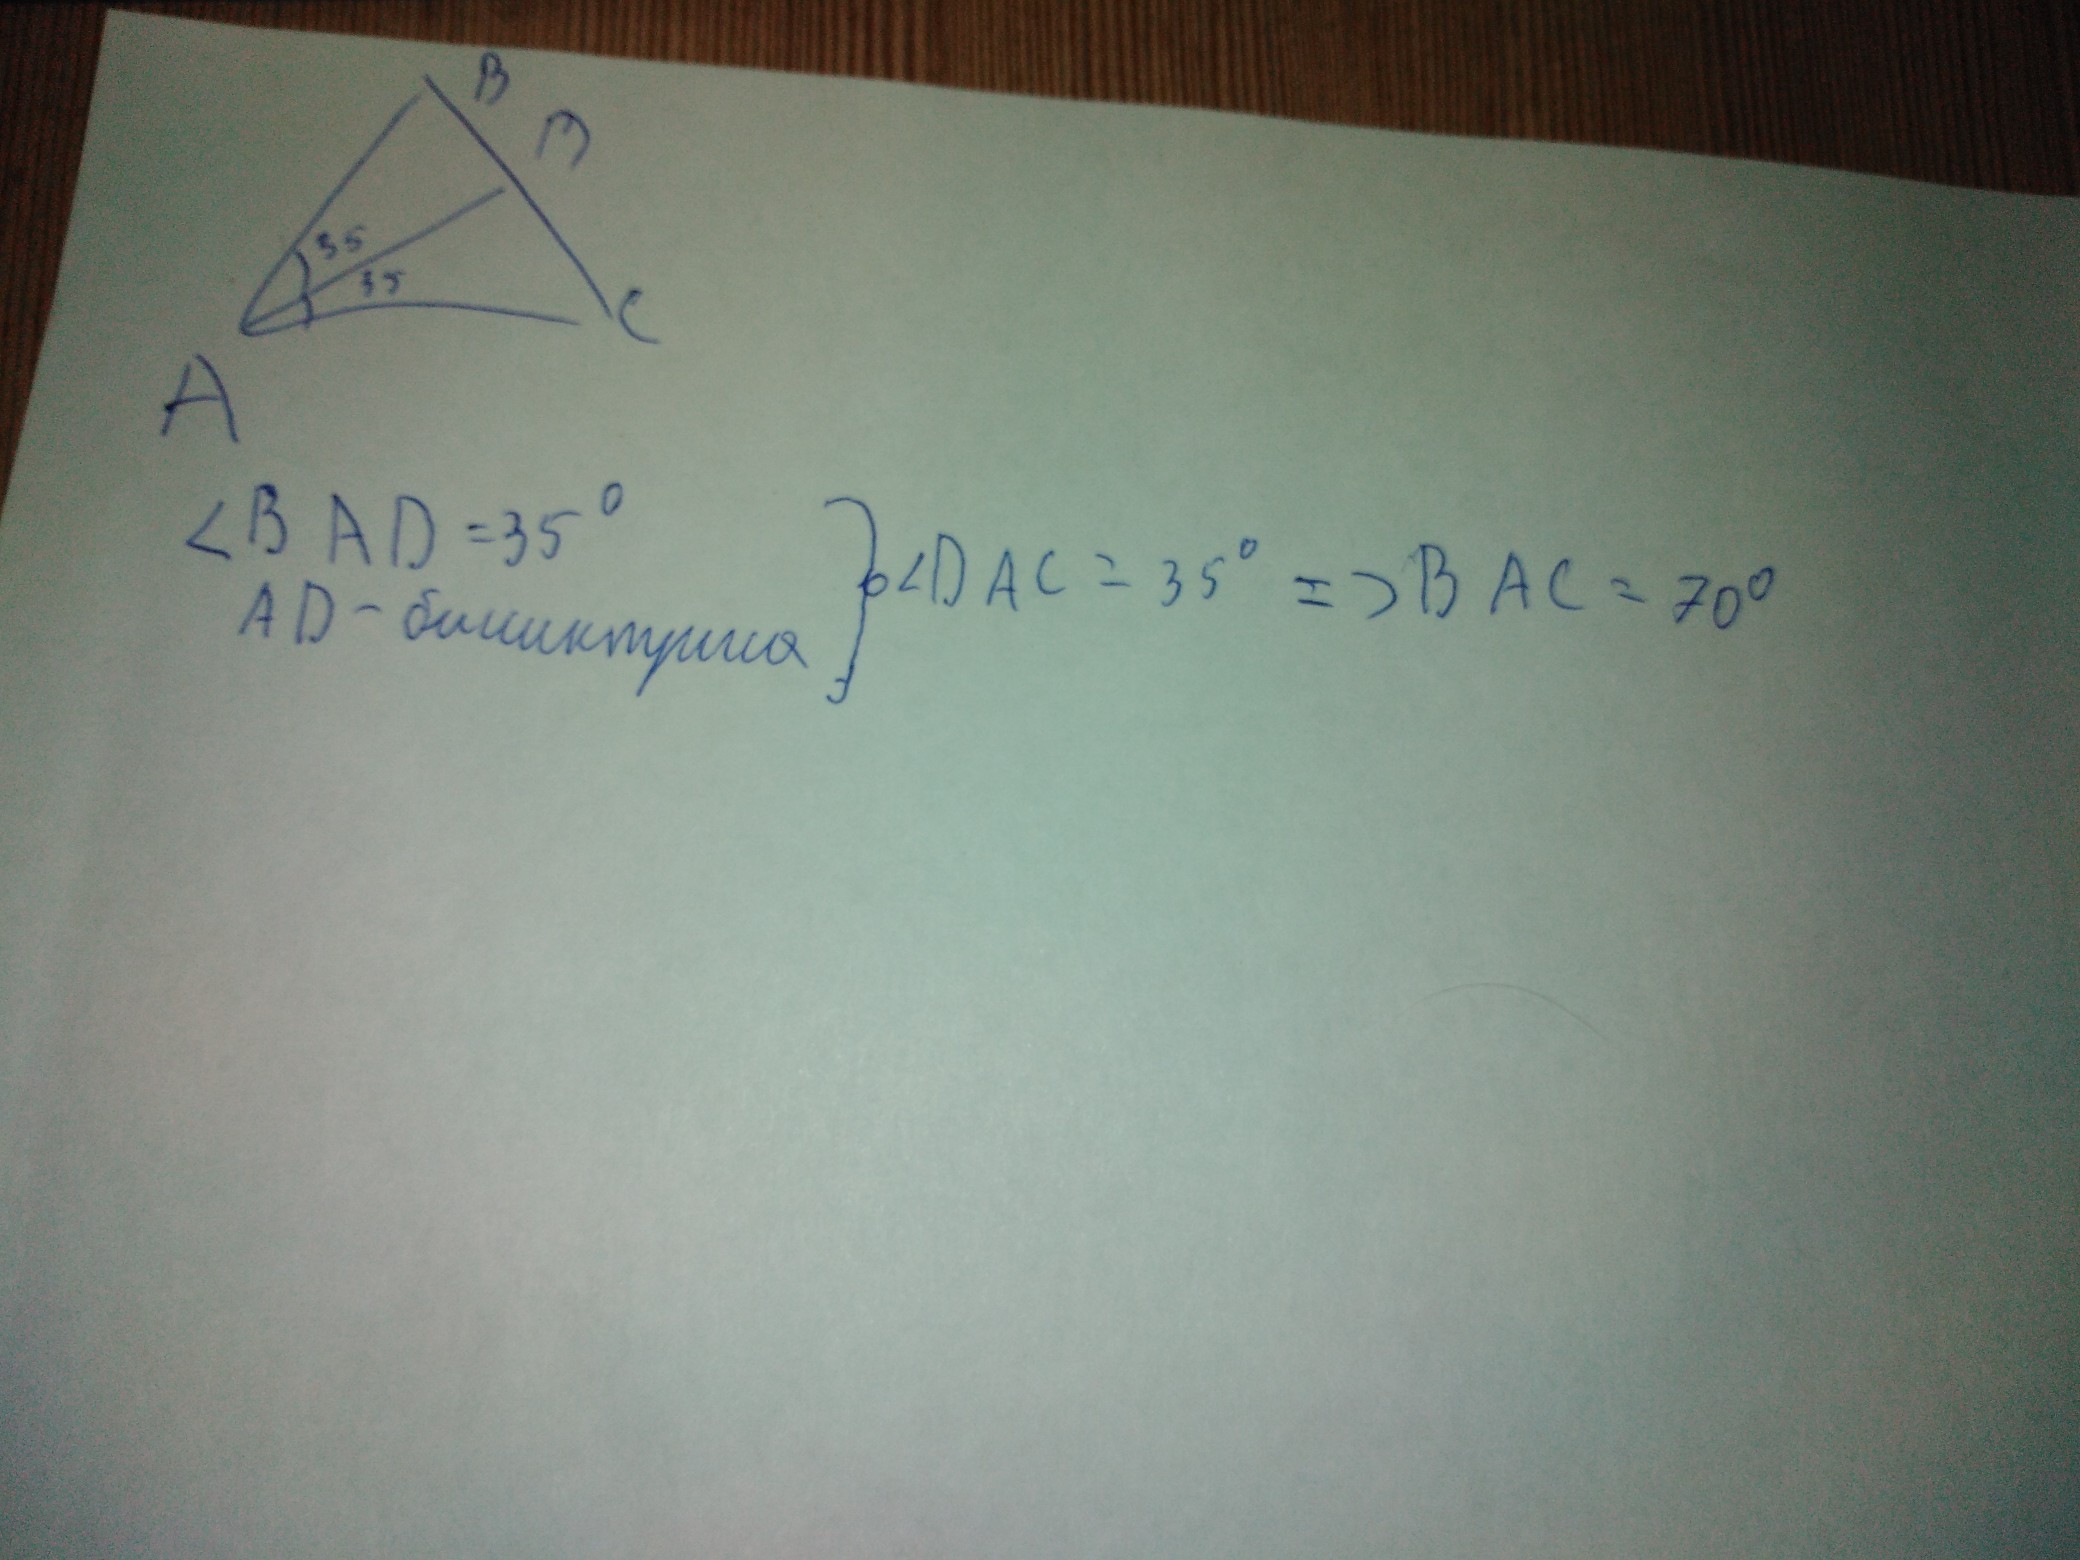 B
D
35
35
C
A
<BAD=35°
AD-биссиктриса } <DAC = 35° => BAC = 70°